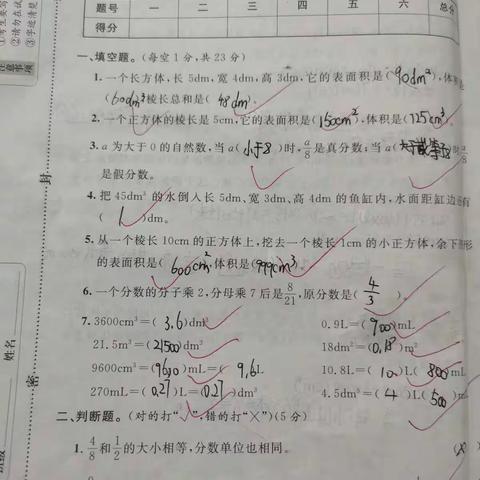 ①考生要写
②请勿在试
③字迹清楚
注意事项
封
密
姓名
班级
题号 一 二 三 四 五 六 总分
得分
一、填空题。(每空1分,共23分)
1. 一个长方体,长5dm,宽4dm,高3dm,它的表面积是(90dm²),体积是
(60dm³棱长总和是(48dm)。
2. 一个正方体的棱长是5cm,它的表面积是(150cm²),体积是(125cm³)。
3. a为大于0的自然数,当a(小于8)时,a/8是真分数;当a(大于或等于8)时a/8
是假分数。
4. 把45dm³的水倒入长5dm、宽3dm、高4dm的鱼缸内,水面距缸边还有
(1)dm。
5. 从一个棱长10cm的正方体上,挖去一个棱长1cm的小正方体,余下图形
的表面积是(600cm²,体积是(999cm³)。
6. 一个分数的分子乘2,分母乘7后是8/21,原分数是(4/3)。
7. 3600cm³=(3.6)dm³ 0.9L=(900)mL
21.5m³=(21500)dm³ 18dm²=(0.18)m²
9600cm³=(9600)mL=(9.6)L 10.8L=(10)L(800)mL
270mL=(0.27)L=(0.27)dm³ 4.5dm³=(4)L(500)mL
二、判断题。(对的打“√”,错的打“×”)(5分)
1. 4/8和1/2的大小相等,分数单位也相同。 (×)